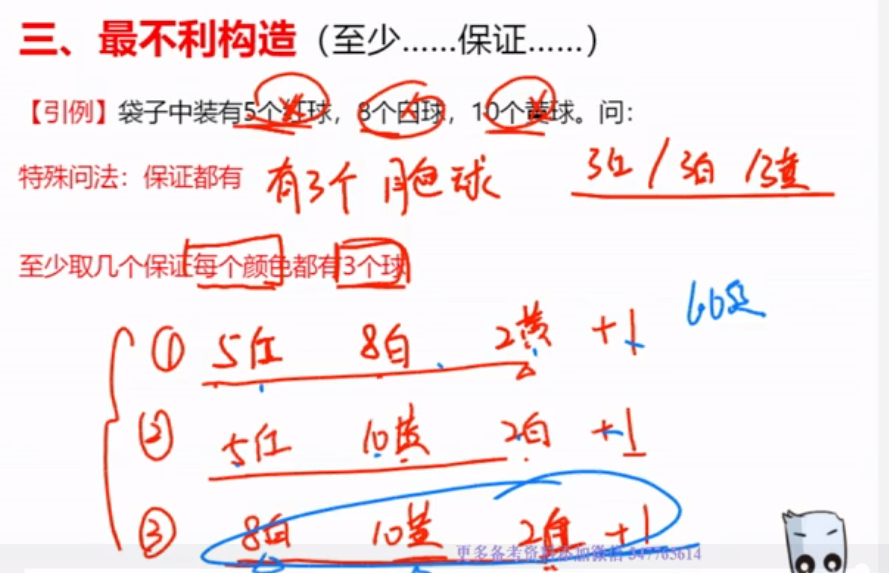 三、最不利构造（至少……保证……）
【引例】袋子中装有5个红球，8个白球，10个黄球。问：
特殊问法：保证都有 有3个 同色球 3红/3白/3黄
至少取几个保证每个颜色都有3个球
① 5红 8白 2黄 +1
② 5红 10黄 2白 +1
③ 8白 10黄 2 +1
更多备考资 微信